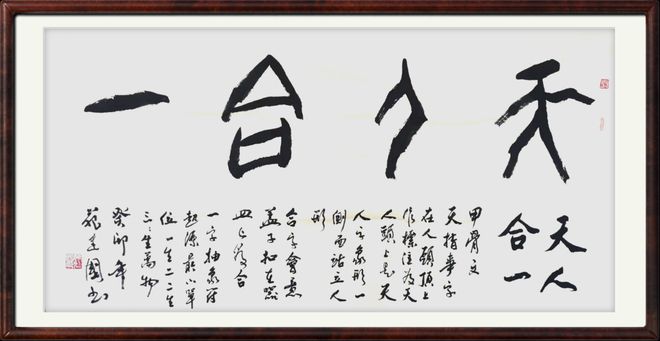 天人合一
天人
合一
甲骨文
天指事字
在人頭頂上
作標注為天
人頭上是天
人字象形一
側面站立人
形
合字會意
蓋子扣在器
皿上為合
一字抽象符
起源最小單
位一生二二生
三三生萬物
癸卯年
國书